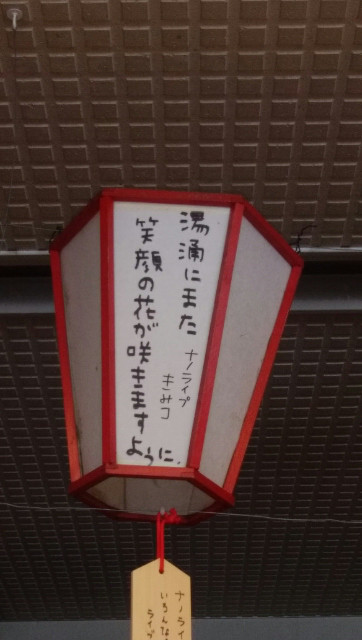 湯涌にまた
笑顔の花が咲きますように.
ナノライブ
きみコ
ナノライ
いろんな
ライブ